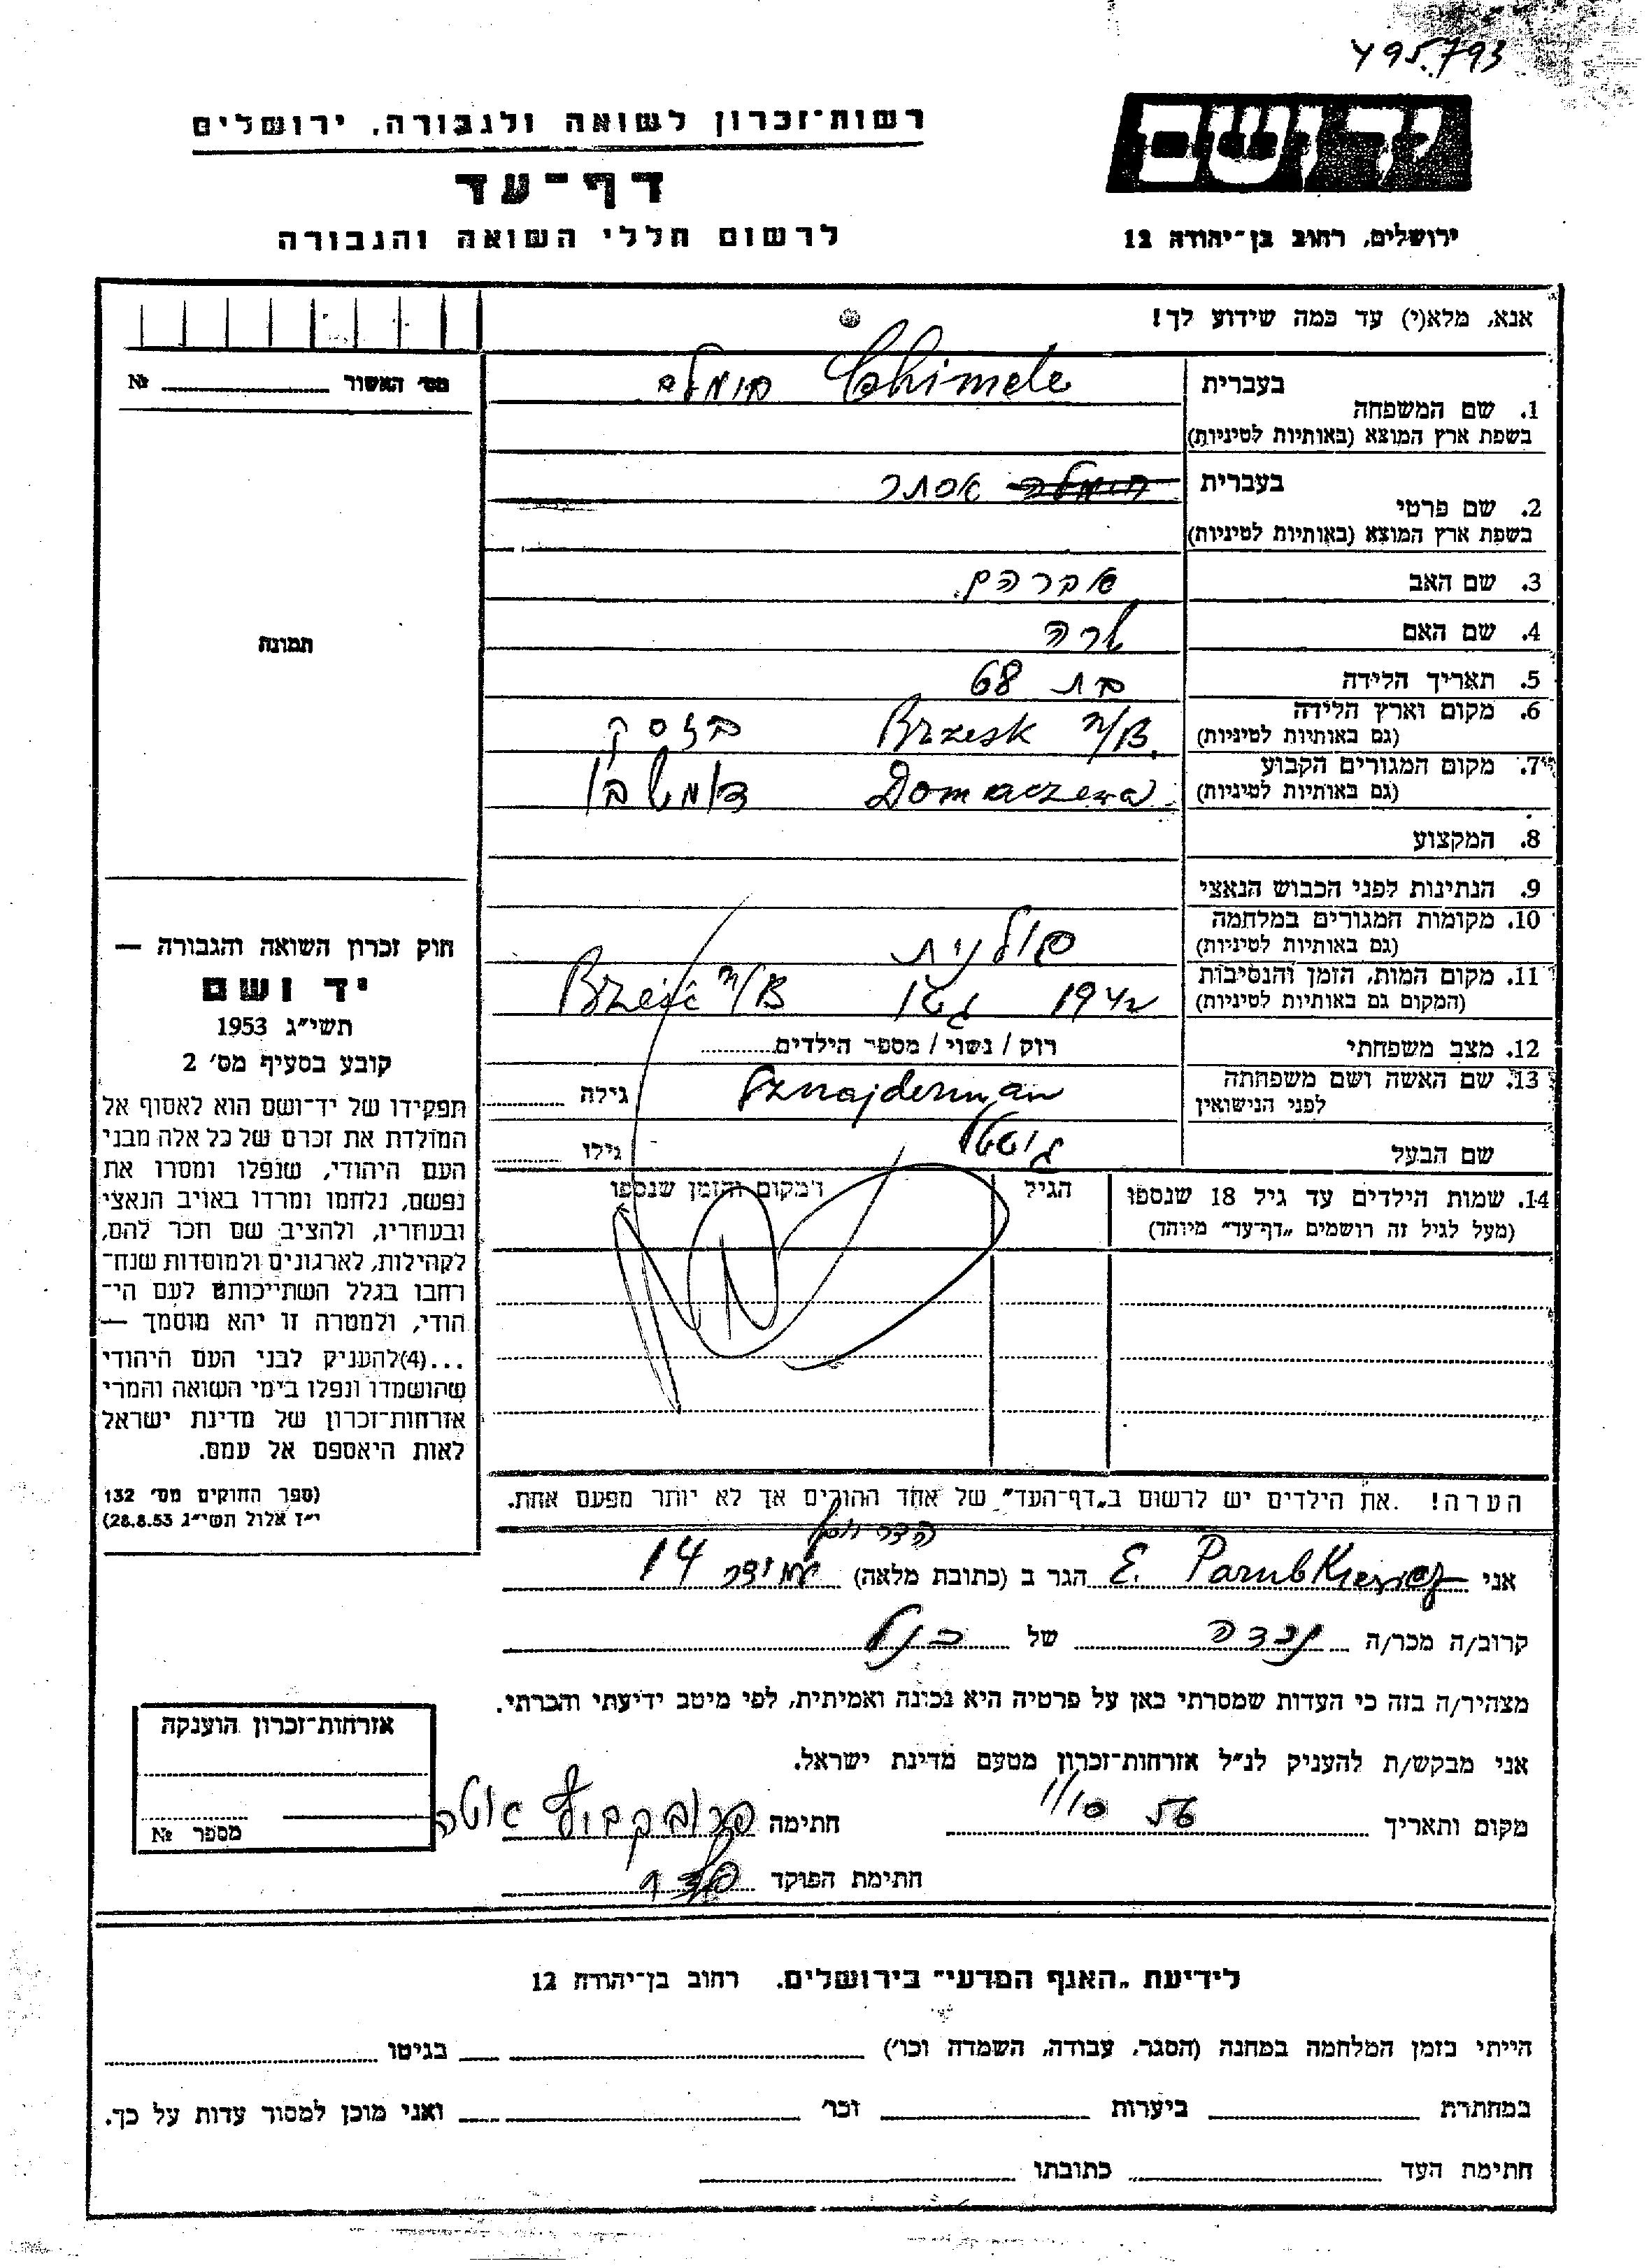 495.793
רשות־זכרון לשואה ולגבורה, ירושלים
יד ושם
דף־עד
לרשום חללי השואה והגבורה
ירושלים, רחוב בן־יהודה 12
אנא, מלא(י) עד כמה שידוע לך!
מס׳ האשור № 
בעברית
1. שם המשפחה
בשפת ארץ המוצא (באותיות לטיניות)
Chimele
בעברית
2. שם פרטי
בשפת ארץ המוצא (באותיות לטיניות)
אסתר
3. שם האב אברהם
4. שם האם שרה
5. תאריך הלידה בת 68
6. מקום וארץ הלידה
(גם באותיות לטיניות)
Brzesk n/B.
7. מקום המגורים הקבוע
(גם באותיות לטיניות)
Domaczewa
8. המקצוע
9. הנתינות לפני הכבוש הנאצי
10. מקומות המגורים במלחמה
(גם באותיות לטיניות)
פולנית
11. מקום המות, הזמן והנסיבות
(המקום גם באותיות לטיניות)
1942 גטו Brześć n/B
12. מצב משפחתי רוק / נשוי / מספר הילדים
13. שם האשה ושם משפחתה
לפני הנישואין
Sznajderman גילה
שם הבעל גילו
14. שמות הילדים עד גיל 18 שנספו
(מעל לגיל זה רושמים „דף־עד״ מיוחד)
הגיל
המקום והזמן שנספו
הערה! את הילדים יש לרשום ב„דף־העד״ של אחד ההורים אך לא יותר מפעם אחת.
תמונה
חוק זכרון השואה והגבורה —
יד ושם
תשי״ג 1953
קובע בסעיף מס׳ 2
תפקידו של יד־ושם הוא לאסוף אל
המולדת את זכרם של כל אלה מבני
העם היהודי, שנפלו ומסרו את
נפשם, נלחמו ומרדו באויב הנאצי
ובעוזריו, ולהציב שם וזכר להם,
לקהילות, לארגונים ולמוסדות שנח־
רבו בגלל השתייכותם לעם הי־
הודי, ולמטרה זו יהא מוסמך —
...(4) להעניק לבני העם היהודי
שהושמדו ונפלו בימי השואה והמרי
אזרחות־זכרון של מדינת ישראל
לאות היאספם אל עמם.
(ספר החוקים מס׳ 132
י״ז אלול תשי״ג 28.8.53)
אני E. Parubkiewicz הגר ב (כתובת מלאה) 14
קרוב/ה מכר/ה נכדה של
מצהיר/ה בזה כי העדות שמסרתי כאן על פרטיה היא נכונה ואמיתית, לפי מיטב ידיעתי והכרתי.
אני מבקש/ת להעניק לנ״ל אזרחות־זכרון מטעם מדינת ישראל.
מקום ותאריך 1/10 56 חתימה
חתימת הפוקד
אזרחות־זכרון הוענקה
מספר №
לידיעת „האגף המדעי״ בירושלים. רחוב בן־יהודה 12
הייתי בזמן המלחמה במחנה (הסגר, עבודה, השמדה וכו׳) בגיטו
במחתרת ביערות וכו׳ ואני מוכן למסור עדות על כך.
חתימת העד כתובתו